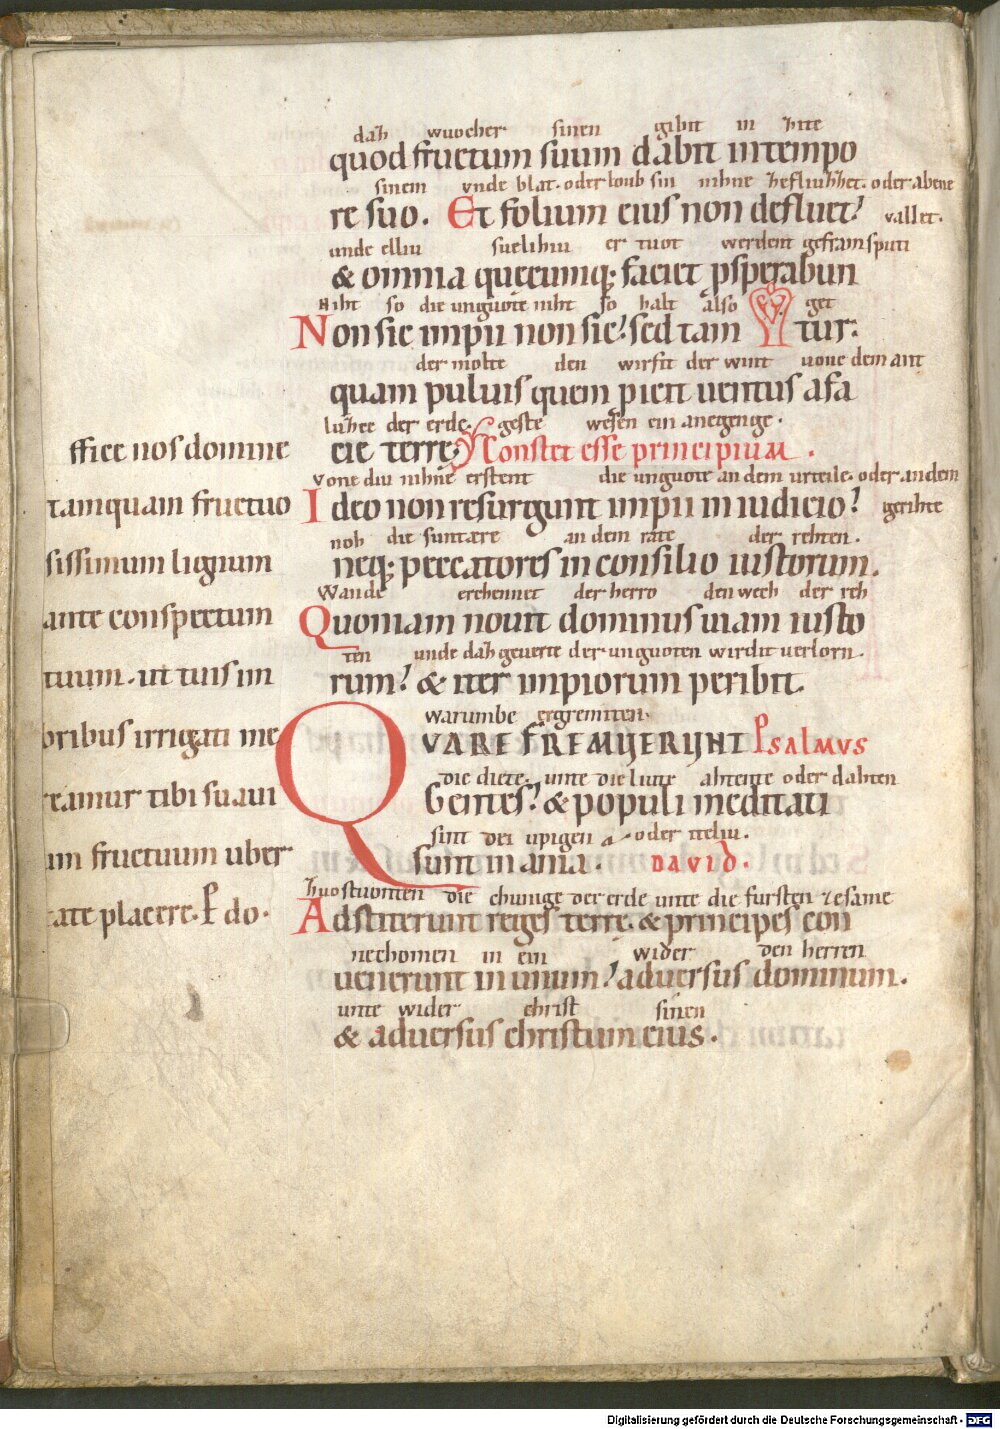 dah wuocher sinen gibit in hite
quod fructum suum dabit in tempo
sinem vnde blat. oder loub sin nihne hefliuhhet. oder abene
re suo. Et folium eius non defluet? vallet.
unde elliu suelihiu er tuot werdent geframsputi
& omnia quecumq; faciet psperabun
Niht so die unguote niht so halt also get
Non sic impii non sic? sed tam tur.
der molte den wirfit der wint vone dem ant
quam puluis quem picit uentus a fa
luhce der erde. geste wesen ein anegenge.
cie terre. Constet esse principium.
vone diu nihne erstent die unguote an dem urteile. oder an dem
Ideo non resurgunt impii in iudicio? gerihte
noh die suntære an dem rate der rehten.
neq; peccatores in consilio iustorum.
Wande erchennet der herro den wech der reh
Quoniam nouit dominus uiam iusto
ten unde dah geuerte der unguoten wirdit uerlorn.
rum? & iter impiorum peribit.
warumbe ergremiten.
QVARE FREMUERUNT Psalmus
die diete. unte die liute ahtente oder dahten
Gentes? & populi meditati
sint dei upigen oder iteliu.
sunt inania. DAVID.
huostuonten die chunige der erde unte die fursten zesame
Adstiterunt reges terre. & principes con
nechomen in ein wider den herren
uenerunt in unum? aduersus dominum.
unte wider christ sinen
& aduersus christum eius.
ffice nos domine
tamquam fructuo
sissimum lignum
ante conspectum
tuum. ut tuis im
bribus irrigati me
reamur tibi suaui
um fructuum uber
tate placere. P do.
Digitalisierung gefördert durch die Deutsche Forschungsgemeinschaft - DFG